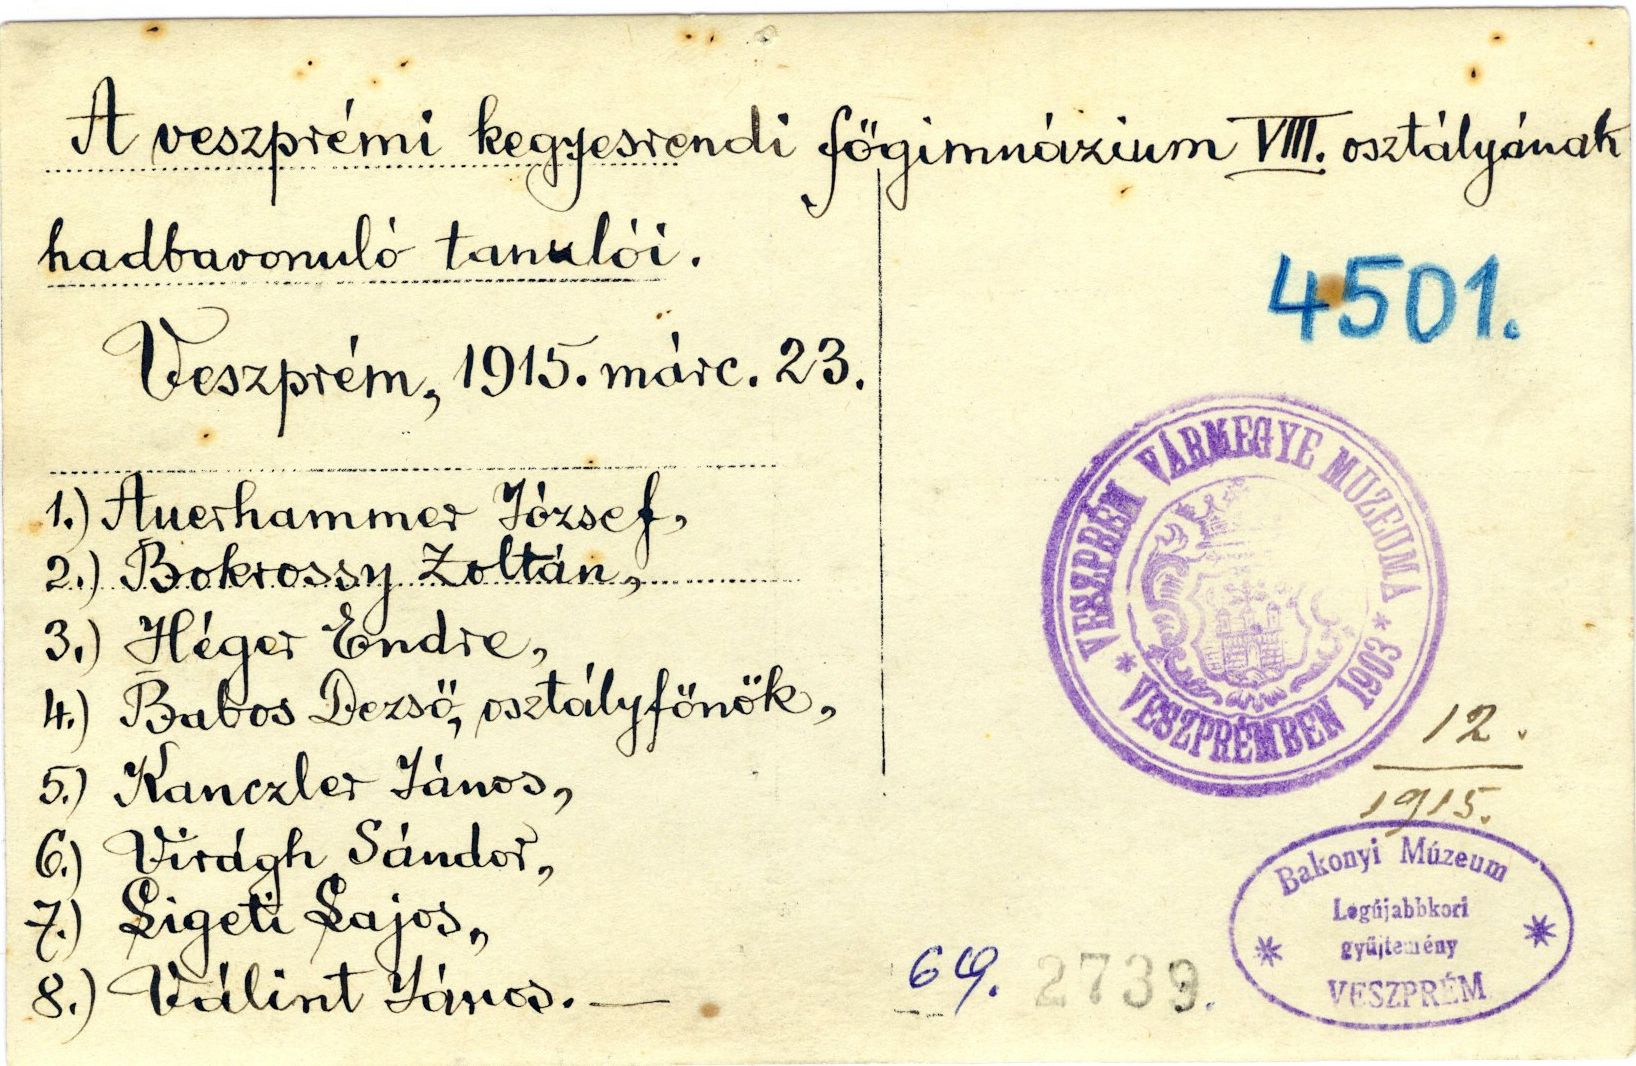 A veszprémi kegyesrendi főgimnázium VIII. osztályának
hadbavonuló tanulói.
Veszprém, 1915. márc. 23.
1.) Auerhammer József,
2.) Bokrossy Zoltán,
3.) Héger Endre,
4.) Babos Dezső, osztályfőnök,
5.) Kanczler János,
6.) Virágh Sándor,
7.) Ligeti Lajos,
8.) Válint János. —
4501.
VESZPRÉM VÁRMEGYE MUZEUMA
* VESZPRÉMBEN 1903 *
12.
1915.
Bakonyi Múzeum
Legújabbkori
gyűjtemény
VESZPRÉM
69. 2739.